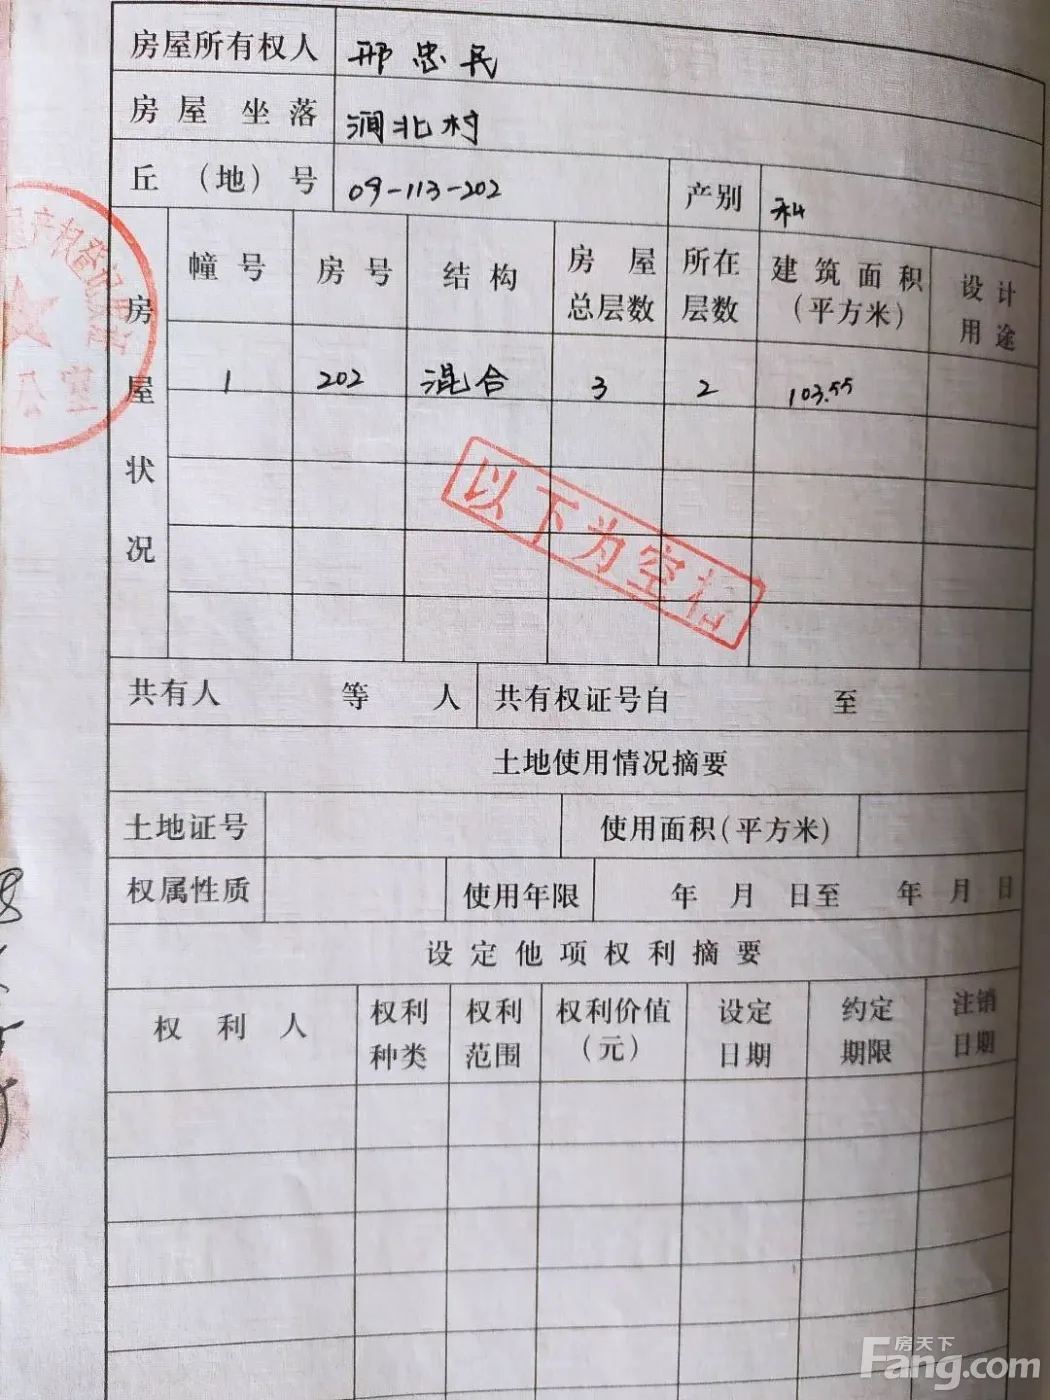 房屋所有权人 邢忠民
房屋坐落 涧北村
丘（地）号 09-113-202 产别 私
房屋状况
幢号 房号 结构 房屋总层数 所在层数 建筑面积（平方米） 设计用途
1 202 混合 3 2 103.55
以下为空格
共有人 等 人 共有权证号自 至
土地使用情况摘要
土地证号 使用面积（平方米）
权属性质 使用年限 年 月 日至 年 月 日
设定他项权利摘要
权利人 权利种类 权利范围 权利价值（元） 设定日期 约定期限 注销日期
房天下
Fang.com